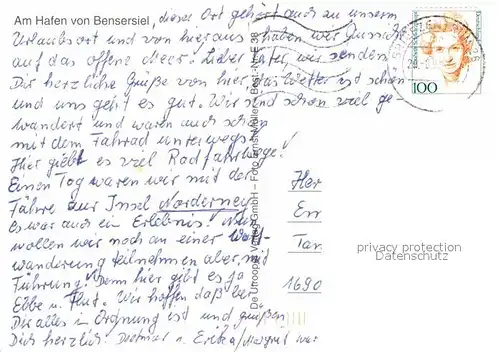 Am Hafen von Bensersiel, dieser Ort gehört auch zu unserem
Urlaubsort und von hier aus haben wir Aussicht
auf das offene Meer. Lieber Peter, wir senden
Dir herzliche Grüße von hier, das Wetter ist schön
und uns geht es gut. Wir sind schon viel ge-
wandert und waren auch schon
mit dem Fahrrad unterwegs.
Hier gibt es viel Radfahrwege!
Einen Tag waren wir mit der
Fähre zur Insel Norderney
Es war auch ein Erlebnis! Nun
wollen wir noch an einer Watt-
wanderung teilnehmen aber mit
Führung! Denn hier gibt es ja
Ebbe u. Flut. Wir hoffen daß bei
Dir alles in Ordnung ist und grüßen
Dich herzlich! Dietmar u. Erika / Margret war
De Utrooper Verlag GmbH – Foto
100
Her
Em
Tan
1690
privacy protection
Datenschutz